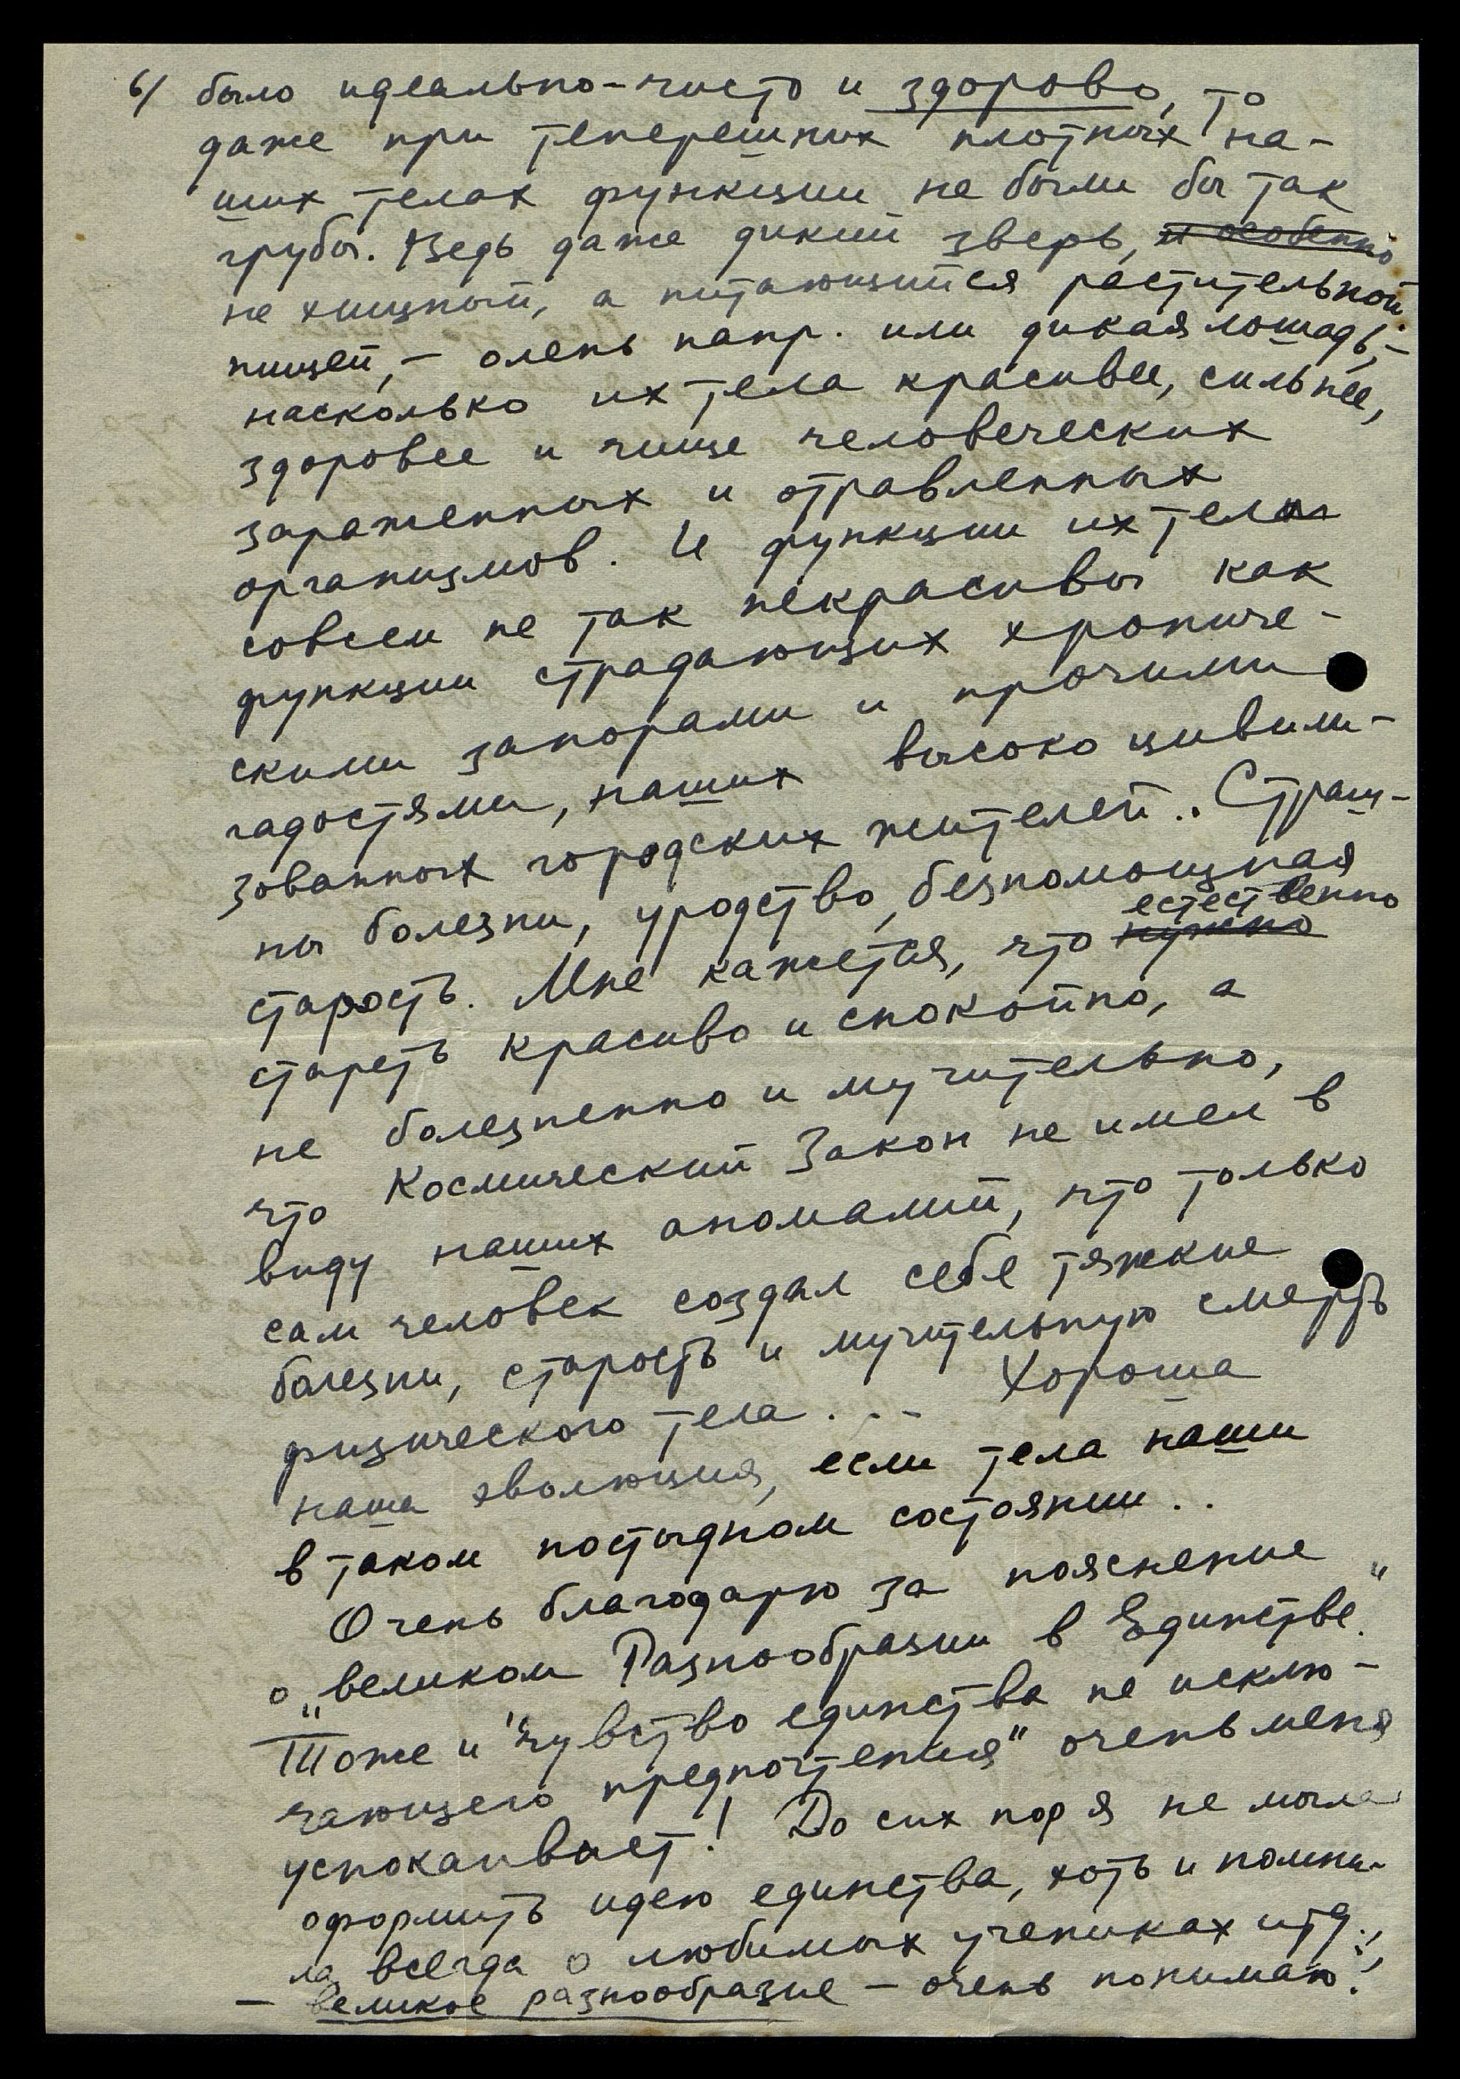 6/ было идеально-чисто и здорово, то
даже при теперешних плотных на-
ших телах функции не были бы так
грубы. Ведь даже дикий зверь, и особенно
не хищный, а питающийся растительной
пищей, – олень напр. или дикая лошадь, –
насколько их тела красивее, сильнее,
здоровее и чище человеческих
зараженных и отравленных
организмов. И функции их тела
совсем не так некрасивы как
функции страдающих хрониче-
скими запорами и прочими
гадостями, наших высоко цивили-
зованных городских жителей.. Страш-
ны болезни, уродство, безпомощная
старость. Мне кажется, что нужно естественно
стареть красиво и спокойно, а
не болезненно и мучительно,
что Космический Закон не имел в
виду наших аномалий, что только
сам человек создал себе тяжкие
болезни, старость и мучительную смерть
физического тела... Хороша
наша эволюция, если тела наши
в таком постыдном состоянии..
Очень благодарю за пояснение
о „великом Разнообразии в Единстве."
Тоже и "чувство единства не исклю-
чающего предпочтения" очень меня
успокаивает! До сих пор я не могла
оформить идею единства, хоть и помни-
ла всегда о любимых учениках итд.!,
– великое разнообразие – очень понимаю!